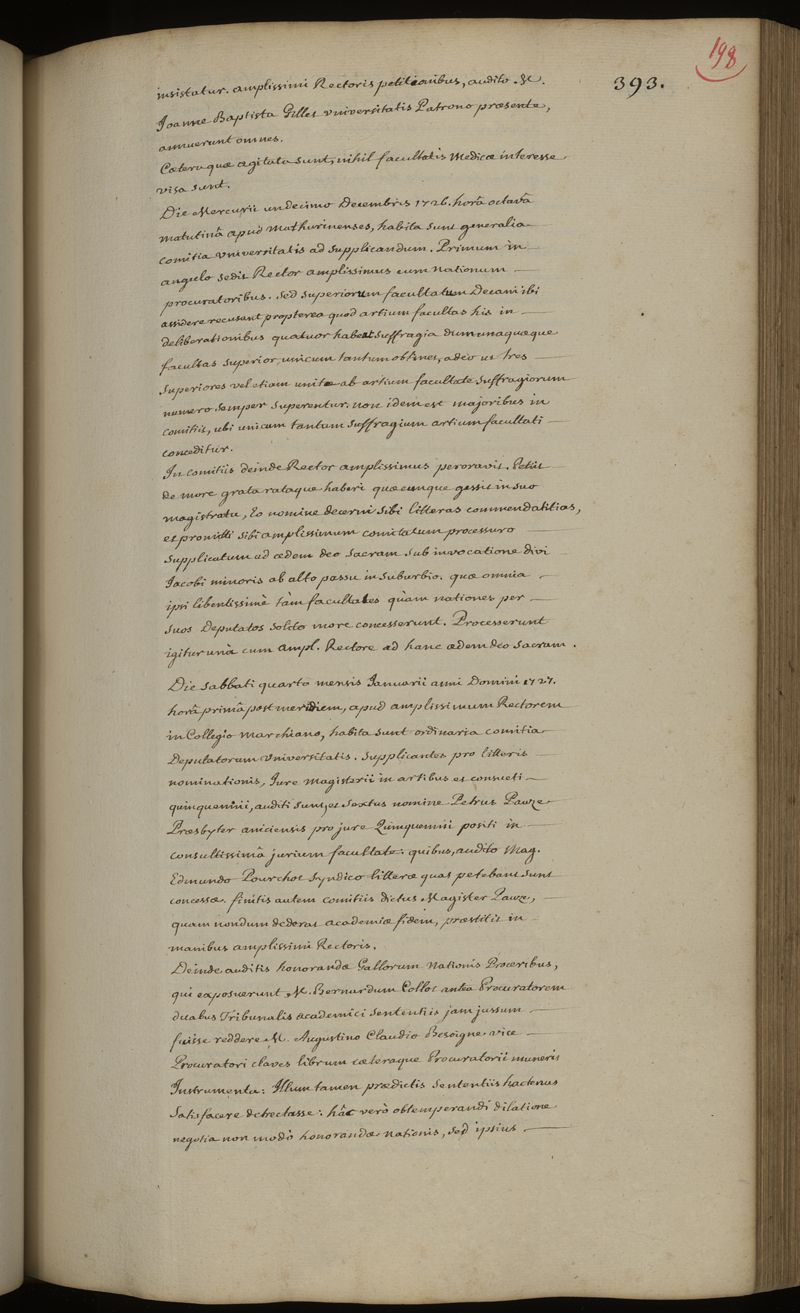 198
393.
insistatur. amplissimi Rectoris petitionibus, audito M.
Joanne Baptista Gillet universitatis Patrono præsente,
annuerunt omnes.
Cætera quæ agitata sunt, nihil facultatis Medicæ interesse
visa sunt.
Die Mercurii undecimo Decembris 1726. horâ octavâ
matutinâ apud Mathurinenses, habita sunt generalia
comitia Universitatis ad supplicandum. Primum in
angulo sedit Rector amplissimus cum Nationum
procuratoribus. sed superiorum facultatum Decani ibi
assidere recusant propterea quod artium facultas his in
deliberationibus quatuor habeat suffragia dum unaquæque
facultas superior, unicum tantum obtinet, adeo ut tres
superiores vel etiam unitæ ab artium facultate suffragiorum
numero semper superentur. non idem est majoribus in
comitiis, ubi unicum tantum suffragium artium facultati
conceditur.
In comitiis deinde Rector amplissimus peroravit. Petiit
de more grata rataque haberi quæcunque gessit in suo
magistratu, Eo nomine decerni sibi litteras commendatitias,
et promitti sibi amplissimum comitatum processuro
supplicatum ad ædem deo sacram sub invocatione divi
Jacobi minoris ab alto passu in suburbio. quæ omnia
ipsi libentissimè tàm facultates quàm nationes per
suos Deputatos solito more concesserunt. Processerunt
igitur unà cum Ampl. Rectore ad hanc ædem deo sacram.
Die sabbati quarto mensis Januarii anni Domini 1727.
horâ primâ post meridiem, apud amplissimum Rectorem
in Collegio Marchiano, habita sunt ordinaria comitia
Deputatorum Universitatis. Supplicantes pro litteris
nominationis, Jure Magisterii in artibus et consueti
quinquennii, auditi sunt, et sextus nomine Petrus Pauze
Præsbyter aniciensis pro jure Quinquennii positi in
consultissimâ jurium facultate: quibus, audito Mag.
Edmundo Pourchot Syndico litteræ quas petebant sunt
concessæ. finitis autem comitiis dictus Magister Pauze,
quam nondum dederat academiæ fidem, præstitit in
manibus amplissimi Rectoris.
Deinde auditis honorandæ Gallorum Nationis Proceribus,
qui exposuerunt M. Bernardum Collot antea Procuratorem
duabus Tribunalis academici sententiis jam jussum
fuisse reddere M. Augustino Claudio Besoigne vice
Procuratori claves librum cæteraque Procuratorii muneris
Instrumenta: Illum tamen prædictis sententiis hactenus
satisfacere detrectasse: hâc verò obtemperandi dilatione
negotia non modò honorandæ nationis, sed ipsius